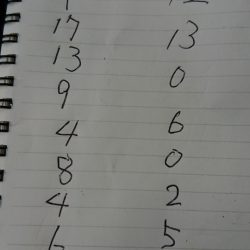 17 13
13 0
9
4 6
8 0
4 2
5